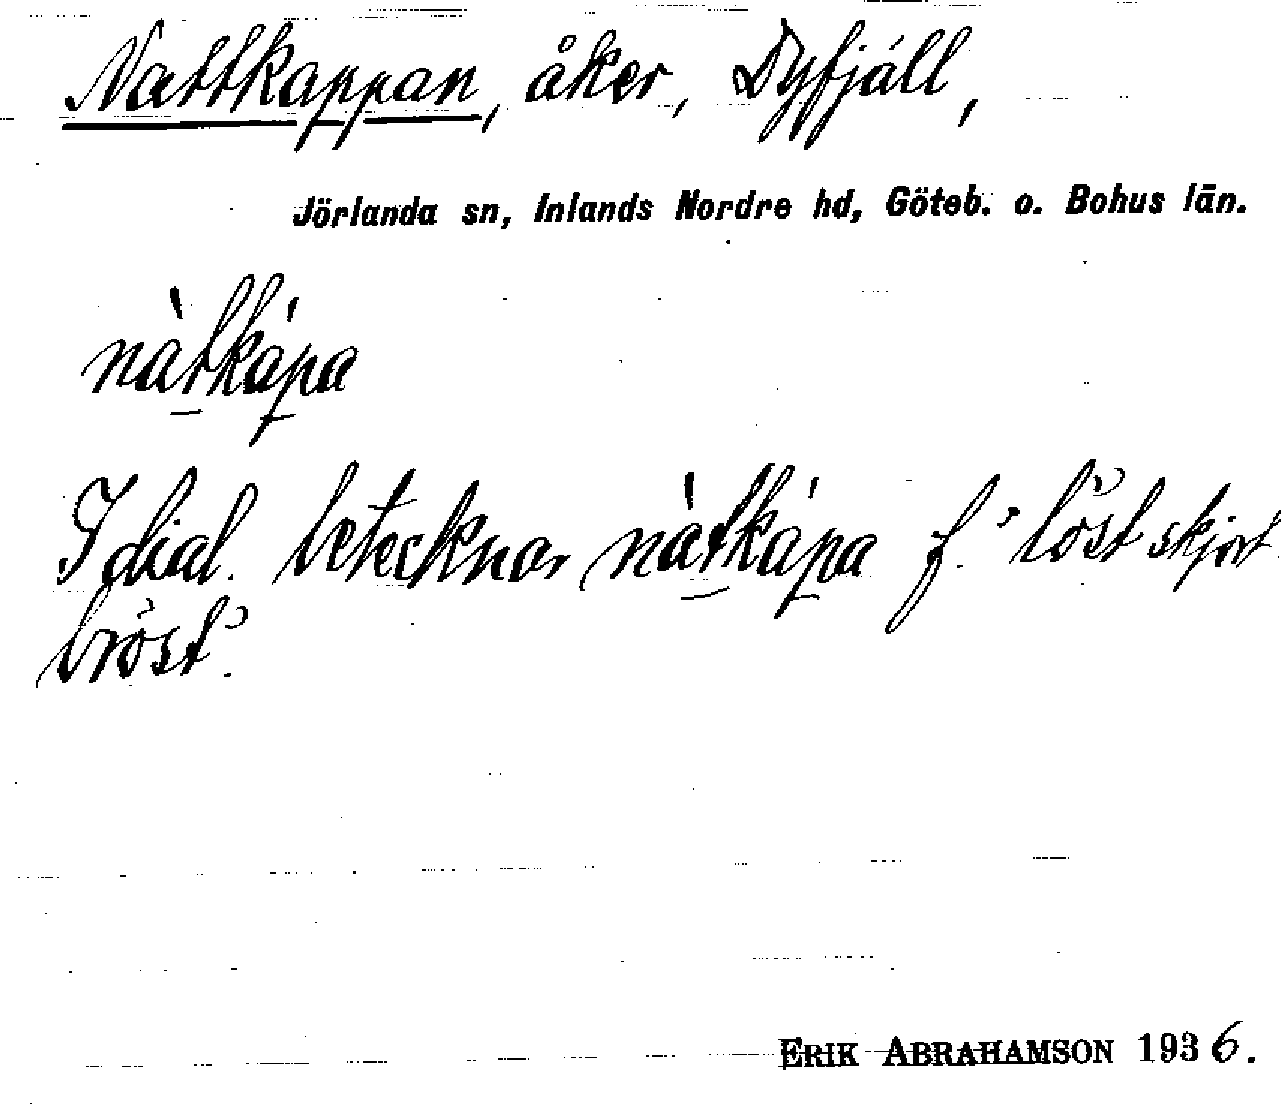 Nattkappan, åker, Dyfjäll,
Jörlanda sn, Inlands Nordre hd, Göteb. o. Bohus län.
nàtkápa
I dial. betecknar nàtkápa f. 'löst skjort
bröst'.
ERIK ABRAHAMSON 1936.